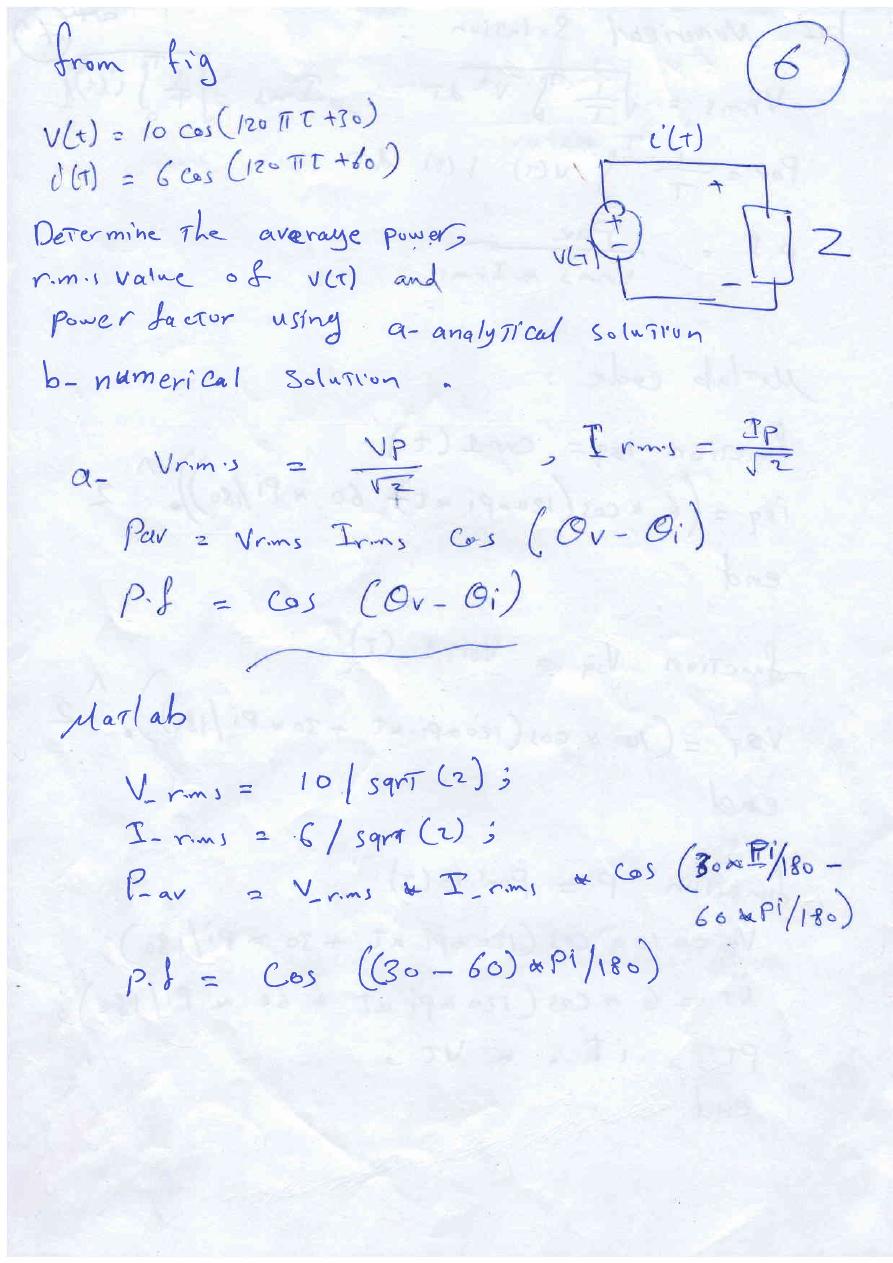 from fig
6
V(t) = 10 cos(120 π t + 30)
i(t) = 6 cos (120 π t + 60)
i(t)
+
+
-
V(t)
-
Z
Determine the average power,
r.m.s value of v(t) and
power factor using a- analytical solution
b- numerical solution .
a- Vr.m.s = Vp/√2 , I rms = Ip/√2
Pav = Vrms Irms cos (θv - θi)
P.f = cos (θv - θi)
Matlab
V_rms = 10 / sqrt (2) ;
I_rms = 6 / sqrt (2) ;
P_av = V_rms * I_rms * cos (30*Pi/180 -
60*Pi/180)
P.f = cos ((30 - 60) * Pi/180)